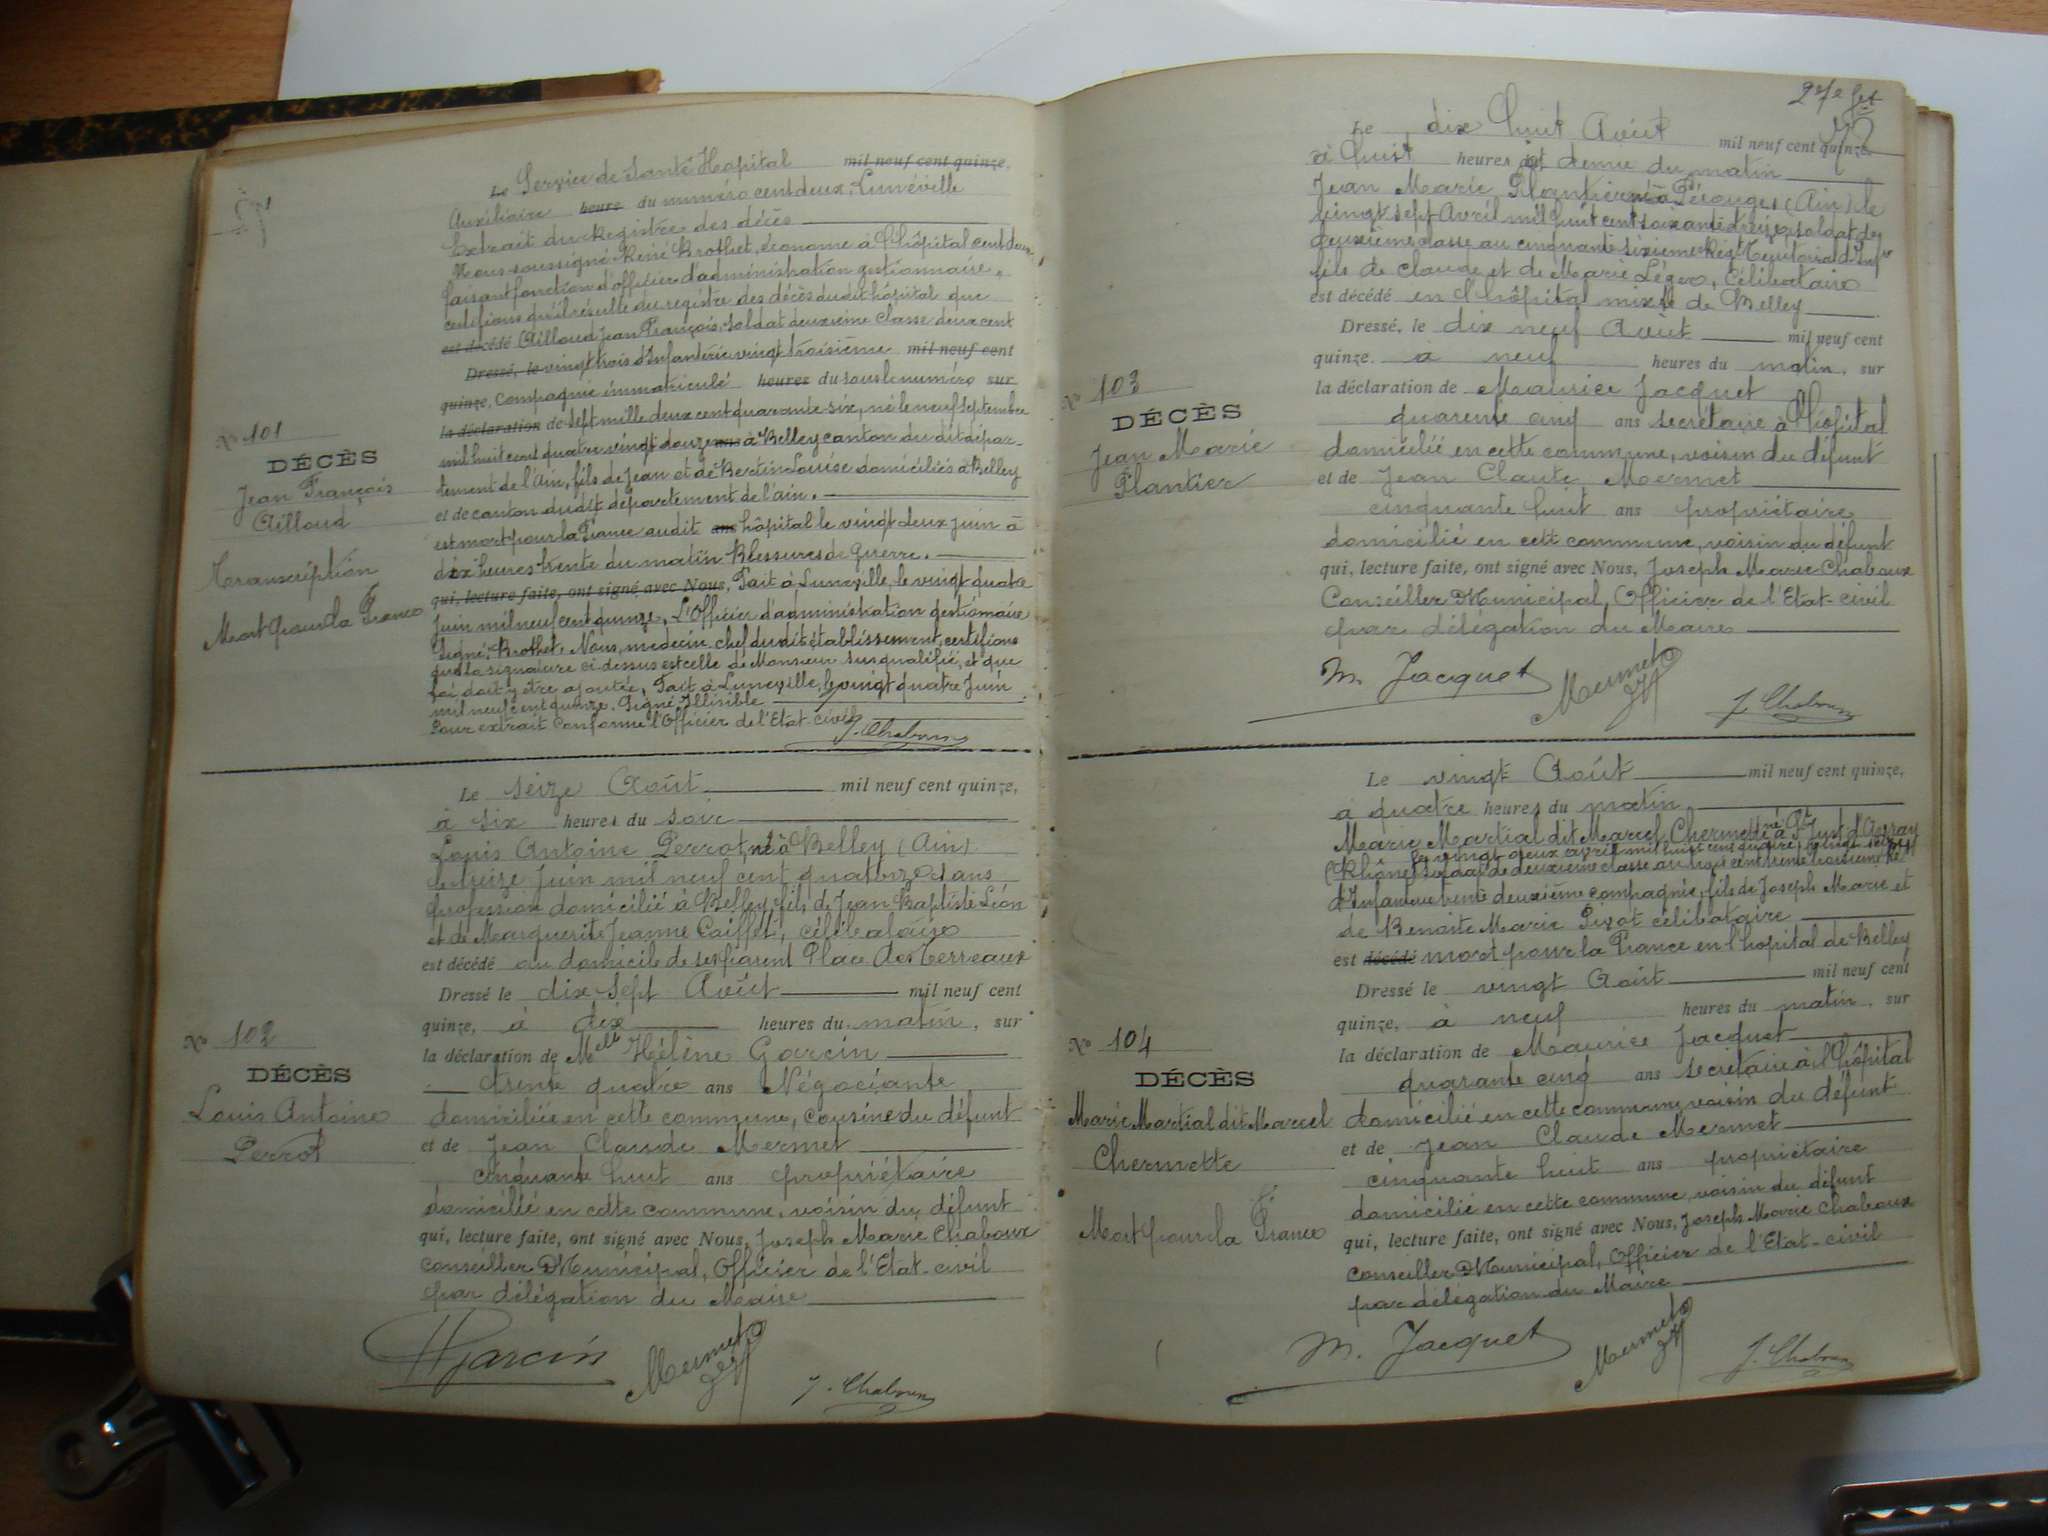 Le Service de Santé Hopital mil neuf cent quinze,
Auxiliaire heure du numéro cent deux, Lunéville
Extrait du Registre des décès
Nous soussigné René Brothet, économe à l'hôpital cent deux
faisant fonction d'officier d'administration gestionnaire,
certifions qu'il résulte du registre des décès dudit hôpital que
est décédé Ailloud Jean François, soldat deuxième classe deux cent
Dressé, le vingt trois d'Infanterie vingt troisième mil neuf cent
quinze, compagnie immatriculé heures du sous le numéro sur
la déclaration de sept mille deux cent quarante six, né le neuf septembre
mil huit cent quatre vingt douze ans à Belley canton du dit dépar-
tement de l'Ain, fils de Jean et de Bertin Louise domiciliés à Belley
et de canton dudit département de l'ain.
est mort pour la France audit ans hôpital le vingt deux juin à
dix heures trente du matin Blessures de Guerre.
qui, lecture faite, ont signé avec Nous, Fait à Luneville, le vingt quatre
Juin mil neuf cent quinze, L'Officier d'administration gestionnaire
Signé, Brothet, Nous, medecin chef du dit établissement, certifions
que la signature ci-dessus est celle de Monsieur sus qualifié, et que
foi doit y être ajoutée, Fait à Luneville, le vingt quatre Juin
mil neuf cent quinze. Signé Illisible
Pour extrait conforme l'Officier de l'Etat-civil
J. Chaboux
No 101
DÉCÈS
Jean François
Ailloud
Transcription
Mort pour la France
Le seize Août mil neuf cent quinze,
à six heures du soir
Louis Antoine Perrot, né à Belley (Ain)
le treize juin mil neuf cent quatorze sans
profession domicilié à Belley fils de Jean Baptiste Léon
et de Marguerite Jeanne Caiffet, célibataire
est décédé au domicile de ses parent Place des Terreaux
Dressé le dix sept Août mil neuf cent
quinze, à dix heures du matin, sur
la déclaration de Melle Hélène Garcin
trente quatre ans Négociante
domiciliée en cette commune, cousine du défunt
et de Jean Claude Mermet
cinquante huit ans propriétaire
domicilié en cette commune, voisin du défunt
qui, lecture faite, ont signé avec Nous, Joseph Marie Chaboux
conseiller Municipal, Officier de l'Etat-civil
par délégation du Maire
No 102
DÉCÈS
Louis Antoine
Perrot
HGarcin
Mermet
J. Chaboux
Le dix huit Août mil neuf cent quinze.
à huit heures et demie du matin
Jean Marie Plantier né à Pérouges (Ain) le
vingt sept Avril mil huit cent soixante treize soldat de
deuxième classe au cinquante sixième Régt Territorial d'Infrie
fils de Claude et de Marie Léger, Célibataire
est décédé en l'hôpital mixte de Belley
Dressé, le dix neuf Août mil neuf cent
quinze. à neuf heures du matin, sur
la déclaration de Maurice Jacquet
quarente cinq ans secrétaire à l'hôpital
domicilié en cette commune, voisin du défunt
et de Jean Claude Mermet
cinquante huit ans propriétaire
domicilié en cette commune, voisin du défunt
qui, lecture faite, ont signé avec Nous, Joseph Marie Chaboux
Conseiller Municipal, Officier de l'Etat-civil
par délégation du Maire
No 103
DÉCÈS
Jean Marie
Plantier
M. Jacquet
Mermet
J. Chaboux
Le vingt Août mil neuf cent quinze,
à quatre heures du matin
Marie Martial dit Marcel Chermette né à St Just d'Avray
le vingt deux avril mil huit cent quatre vingt
(Rhône) soldat de deuxième classe au trois cent trente troisième Rt
d'Infanterie trente deuxième compagnie, fils de Joseph Marie et
de Benoite Marie Pivot célibataire
est décédé mort pour la France en l'hopital de Belley
Dressé le vingt Août mil neuf cent
quinze, à neuf heures du matin, sur
la déclaration de Maurice Jacquet
quarante cinq ans secrétaire à l'hôpital
domicilié en cette commune voisin du défunt
et de Jean Claude Mermet
cinquante huit ans propriétaire
domicilié en cette commune, voisin du défunt
qui, lecture faite, ont signé avec Nous, Joseph Marie Chaboux
conseiller Municipal, Officier de l'Etat-civil
par délégation du Maire
No 104
DÉCÈS
Marie Martial dit Marcel
Chermette
Mort pour la France
M. Jacquet
Mermet
J. Chaboux